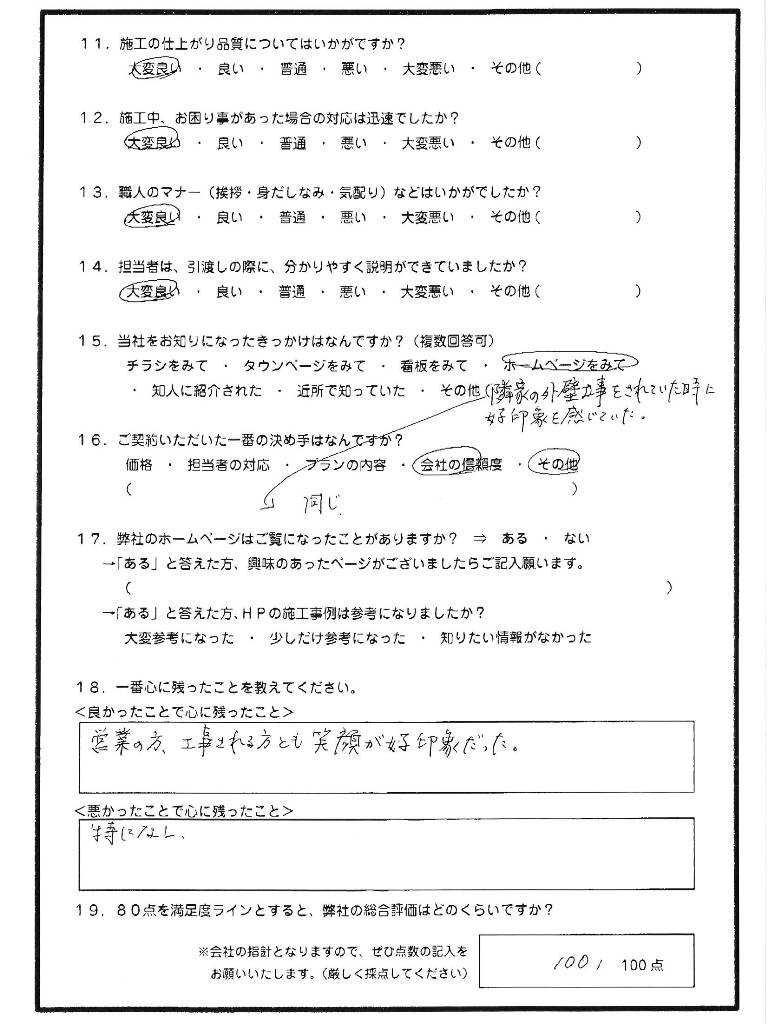 １１．施工の仕上がり品質についてはいかがですか？
大変良い ・ 良い ・ 普通 ・ 悪い ・ 大変悪い ・ その他（ ）
１２．施工中、お困り事があった場合の対応は迅速でしたか？
大変良い ・ 良い ・ 普通 ・ 悪い ・ 大変悪い ・ その他（ ）
１３．職人のマナー（挨拶・身だしなみ・気配り）などはいかがでしたか？
大変良い ・ 良い ・ 普通 ・ 悪い ・ 大変悪い ・ その他（ ）
１４．担当者は、引渡しの際に、分かりやすく説明ができていましたか？
大変良い ・ 良い ・ 普通 ・ 悪い ・ 大変悪い ・ その他（ ）
１５．当社をお知りになったきっかけはなんですか？（複数回答可）
チラシをみて ・ タウンページをみて ・ 看板をみて ・ ホームページをみて
・ 知人に紹介された ・ 近所で知っていた ・ その他（隣家の外壁工事をされていた時に
好印象を感じていた。
１６．ご契約いただいた一番の決め手はなんですか？
価格 ・ 担当者の対応 ・ プランの内容 ・ 会社の信頼度 ・ その他
（ 同じ ）
１７．弊社のホームページはご覧になったことがありますか？ ⇒ ある ・ ない
→「ある」と答えた方、興味のあったページがございましたらご記入願います。
（ ）
→「ある」と答えた方、ＨＰの施工事例は参考になりましたか？
大変参考になった ・ 少しだけ参考になった ・ 知りたい情報がなかった
１８．一番心に残ったことを教えてください。
＜良かったことで心に残ったこと＞
営業の方、工事される方とも笑顔が好印象だった。
＜悪かったことで心に残ったこと＞
特になし、
１９．８０点を満足度ラインとすると、弊社の総合評価はどのくらいですか？
※会社の指計となりますので、ぜひ点数の記入を
お願いいたします。（厳しく採点してください）
100 / 100点